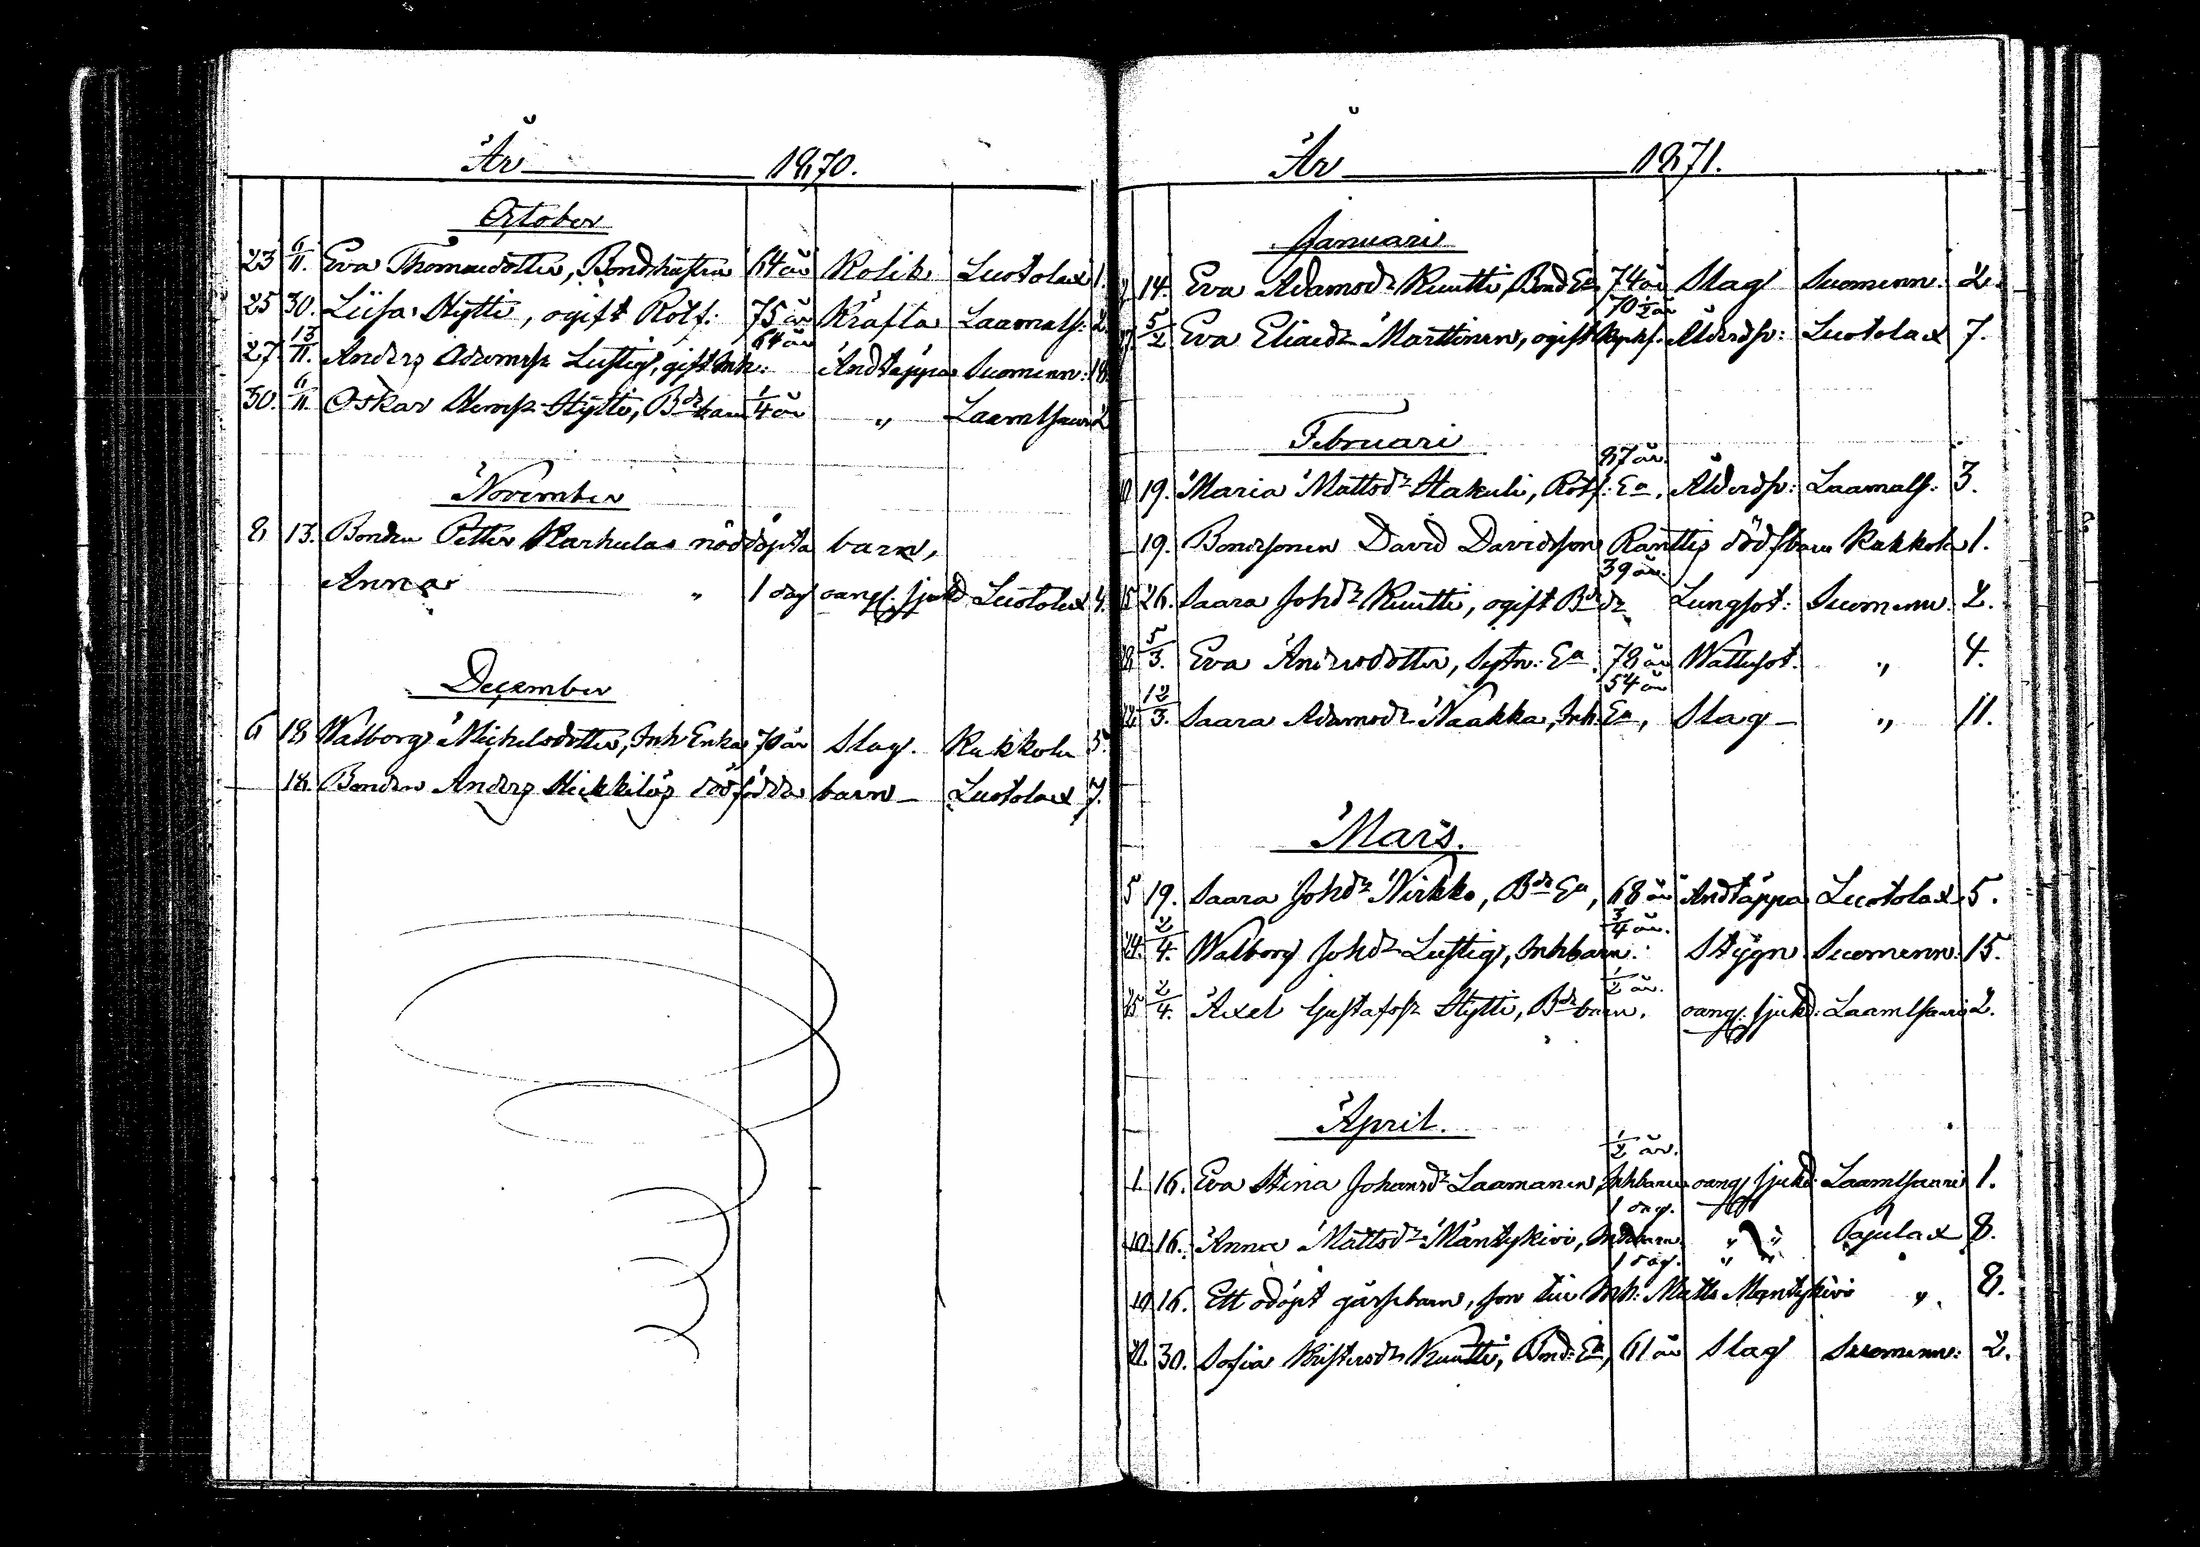 År 1870.
October
23 6/11. Eva Thomasdotter, Bondhustru 64 år Kolik Luotolax 1.
25 30. Liisa Hytti, ogift Rotf: 75 år Kräfta Laamals: 2.
64 år
27 13/11. Anders Adamss: Lustig, gift Inh: Andtäppa Suomenn: 18.
30. 6/11. Oskar Hytti, Bds barn 1/4 år " Laamlsaari 2
November
8 13. Bonden Petter Karhulas nöddöpta barn,
Anna " 1 dag oang. sjukd Luotolax 4.
December
6 18 Walborg Michelsdotter, Inh Enka 70 år Slag. Kukkola 5.
18. Bonden Anders Heikkiläs dödfödda barn Luotolax 7.
År 1871.
Januari
14. Eva Adamsdr Kuutti, Bond Ea 74 år Slag Suomenn: 2.
70 1/2 år
5/2 Eva Eliaedr Marttinen, ogift Ålderdsv: Luotolax 7.
Februari
87 år.
19. Maria Mattsdr Hakuli, Rotf: Ea, Ålderdsv: Laamals: 3.
19. Bondsonen David Davidsson Ranttis dödf barn Kukkola 1.
39 år.
26. Saara Johdr Kuutti, ogift Bds dr Lungsot: Suomenn. 2.
28 5/3. Eva Andersdotter, Sytn: Ea 78 år Wattusot. " 4.
54 år
12/3. Saara Adamsdr Naakka, Inh Ea, Slag " 11.
Mars.
5 19. Saara Johdr Nirkko, Bds Ea, 68 år Andtäppa Luotolax 5.
3/4 år.
24. 2/4. Walborg Johdr Lustig, Inhbarn. Stygn Suomenn: 15.
1/2 år.
25 2/4. Axel Gustafss Hytti, Bds barn. oang: sjukd: Laamlsaari 2.
April.
1/2 år.
1. 16. Eva Stina Johansdr Laamanen, Inhbarn oang. sjukd Laamlsaari 1.
1 dag.
10 16. Anna Mattsdr Mäntykivi, Inhbarn. " " Pajulax 8.
1 dag. " "
10 16. Ett odöpt gossebarn, son till Inh: Matts Mäntykivi " 8.
22 30. Sofia Kristersdr Kuutti, Bond: Ea, 61 år Slag Suomenn: 2.